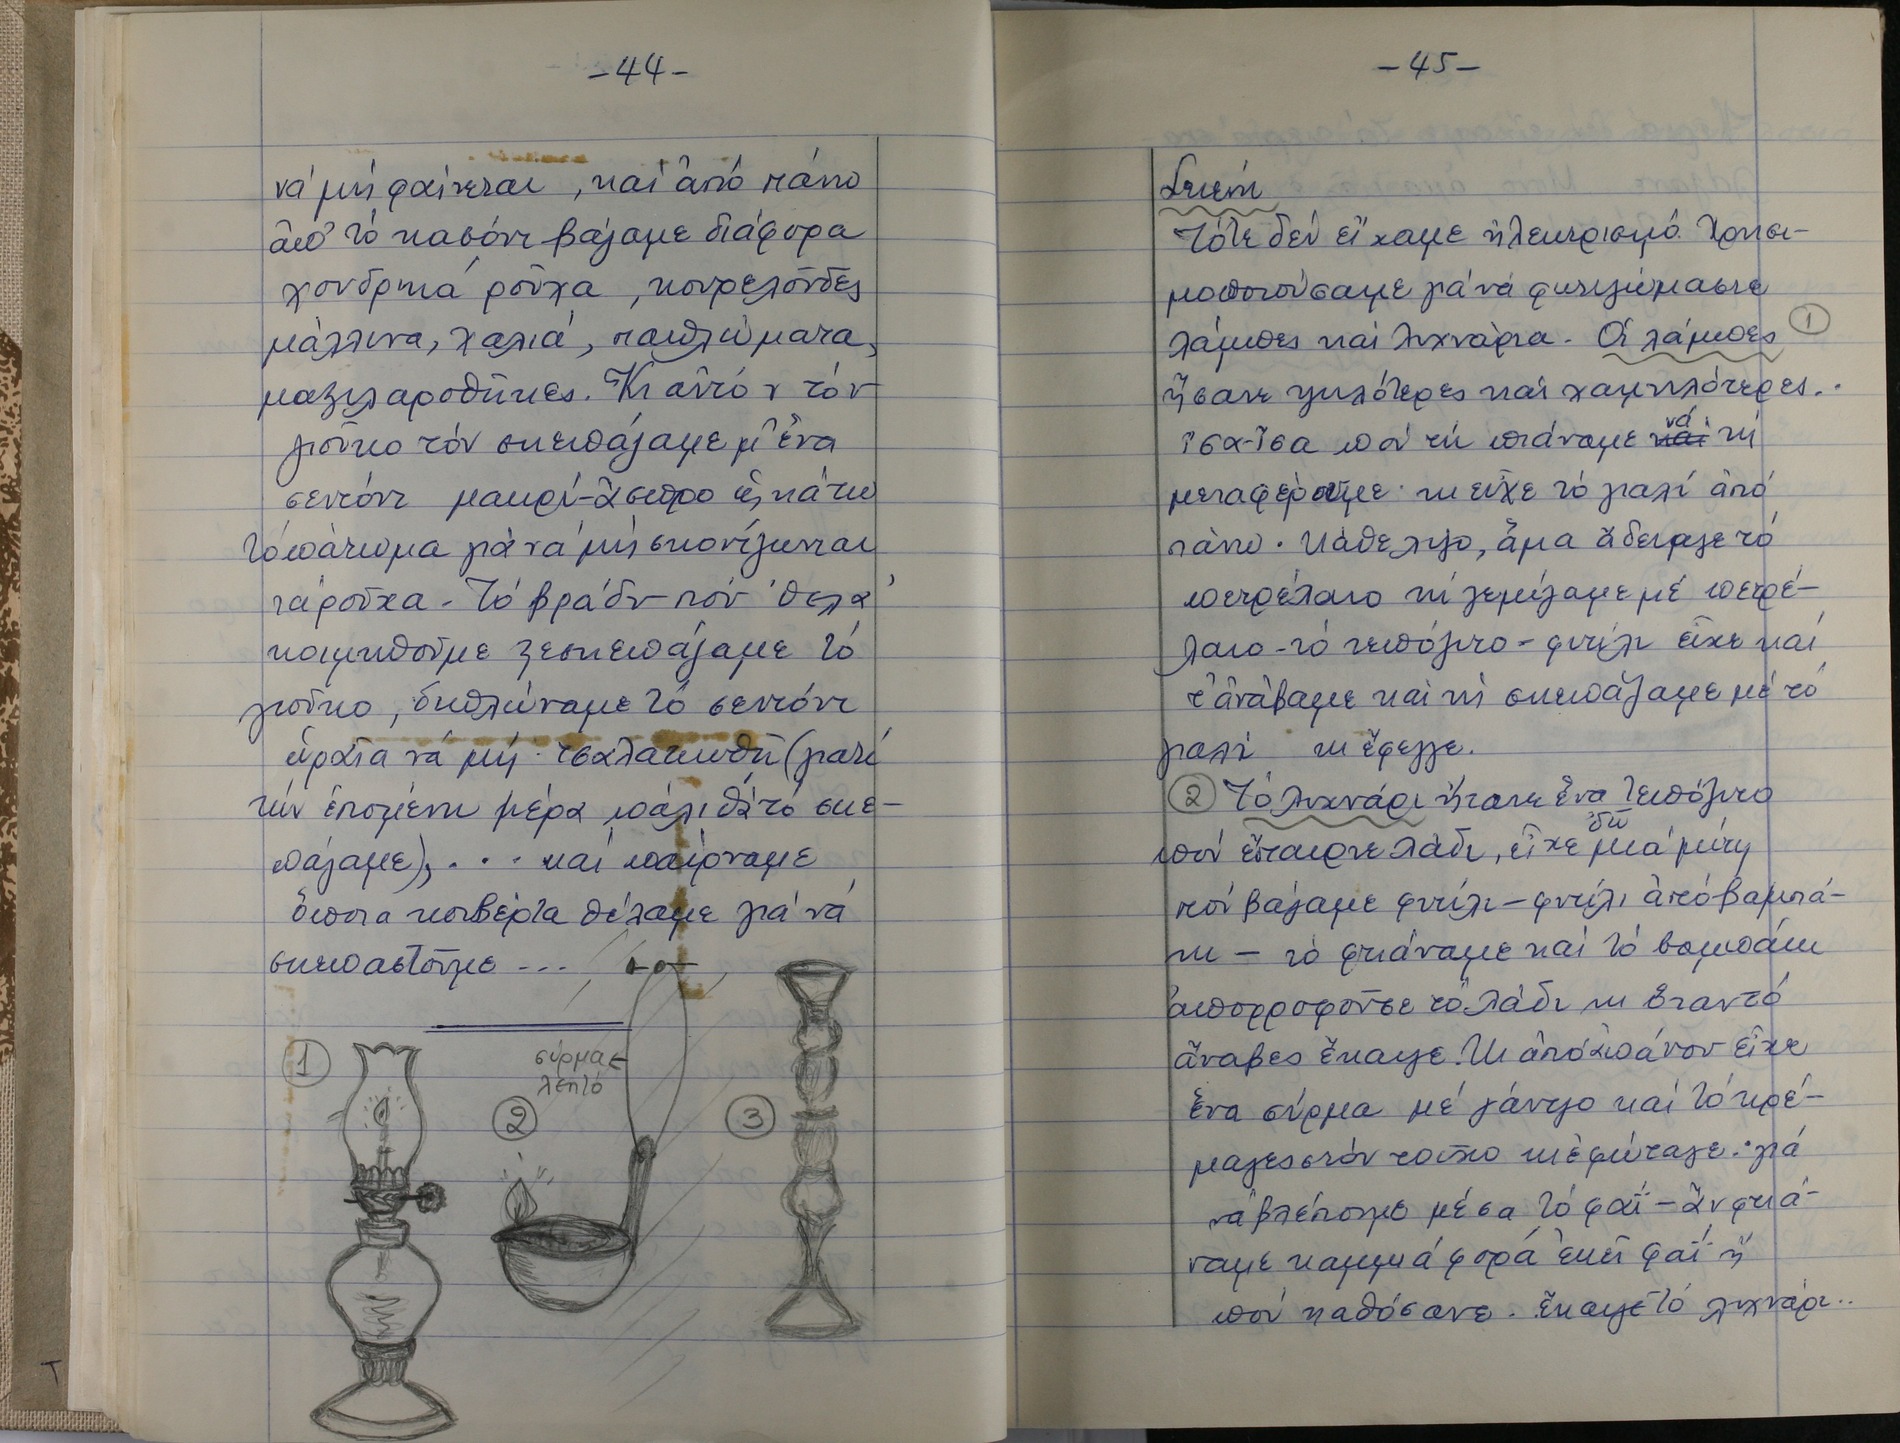 -44-
νά μή φαίνεται, καί ἀπό πάνω
ἀπ' τό κασόνι βάζαμε διάφορα
χονδρικά ροῦχα, κουρελοῦδες
μάλλινα, χαλιά, παπλώματα,
μαξιλαροθῆκες. Κι αὐτόν τόν
γιοῦκο τόν σκεπάζαμε μ' ἕνα
σεντόνι μακρύ-ἄσπρο ὥς κάτω
τό πάτωμα γιά νά μή σκονίζωνται
τά ροῦχα. Τό βράδυ πού 'θελα
κοιμηθοῦμε ξεσκεπάζαμε τό
γιοῦκο, διπλώναμε τό σεντόνι
ὡραῖα νά μή τσαλακωθῆ (γιατί
τήν ἐπομένη μέρα πάλι θά τό σκε-
πάζαμε), ... καί παίρναμε
ὅποια κουβέρτα θέλαμε γιά νά
σκεπαστοῦμε ...
1
σύρμα
λεπτό
2
3
-45-
Σκεύη
Τότε δέν εἴχαμε ἠλεκτρισμό. Χρησι-
μοποιούσαμε γιά νά φωτιζώμαστε
λάμπες καί λυχνάρια. Οἱ λάμπες 1
ἤσανε ψηλότερες καί χαμηλότερες..
ἴσα-ἴσα πού τή πιάναμε νά τή
μεταφέρουμε. κι εἶχε τό γιαλί ἀπό
πάνω. Κάθε λίγο, ἅμα ἄδειαζε τό
πετρέλαιο τή γεμίζαμε μέ πετρέ-
λαιο-τό τεπόζιτο-φυτίλι εἶχε καί
τ' ἀνάβαμε καί τή σκεπάζαμε μέ τό
γιαλί κι ἔφεγγε.
2 Τό λυχνάρι ἤτανε ἕνα τεπόζιτο
πού ἔπαιρνε λάδι, εἶχε 'δῶ μιά μύτη
πού βάζαμε φυτίλι-φυτίλι ἀπό βαμπά-
κι - τό φτιάναμε καί τό βαμπάκι
ἀπορροφοῦσε τό λάδι κι ὅταν τό
ἄναβες ἔκαιγε. Κι ἀπό ἀπάνου εἶχε
ἕνα σύρμα μέ γάντζο καί τό κρέ-
μαγες στόν τοῖχο κι ἐφώταγε. γιά
νά βλέπουμε μέσα τό φαΐ-ἄν φτιά-
ναμε καμμιά φορά ἐκεῖ φαΐ ἤ
πού καθόσανε. ἔκαιγε τό λυχνάρι..